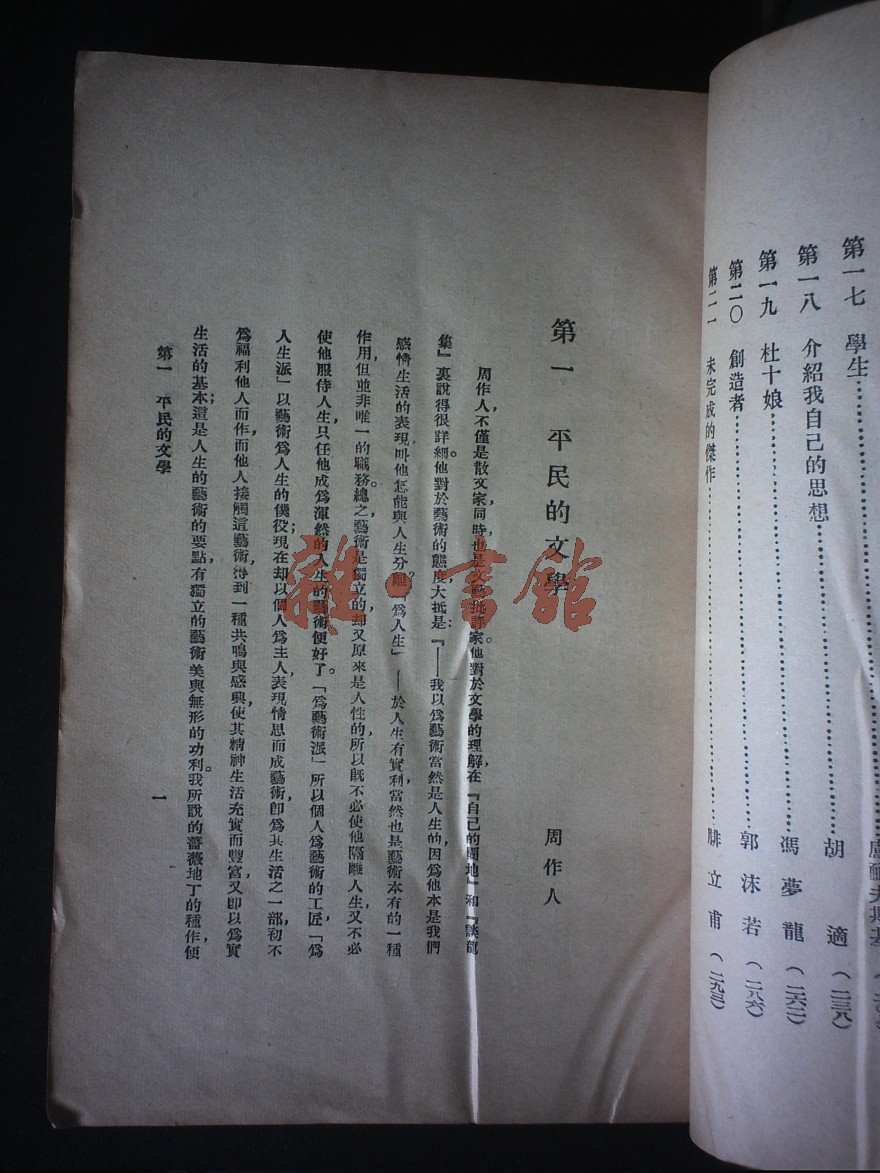 第一七 學生
第一八 介紹我自己的思想 胡適(二三八)
第一九 杜十娘 馮夢龍(二六二)
第二〇 創造者 郭沫若(二八六)
第二一 未完成的傑作 腓立甫(二九三)
第一 平民的文學 周作人
周作人,不僅是散文家,同時也是文藝批評家。他對於文學的理解,在『自己的園地』和『談龍
集』裏說得很詳細。他對於藝術的態度大抵是:『——我以爲藝術當然是人生的,因爲他本是我們
感情生活的表現,叫他怎能與人生分離?「爲人生」——於人生有實利,當然也是藝術本有的一種
作用,但並非唯一的職務。總之藝術是獨立的,却又原來是人性的,所以既不必使他隔離人生,又不必
使他服侍人生,只任他成爲渾然的人生的藝術便好了。「爲藝術派」所以個人爲藝術的工匠,「爲
人生派」以藝術爲人生的僕役;現在却以個人爲主人,表現情思而成藝術,即爲其生活之一部,初不
爲福利他人而作,而他人接觸這藝術,得到一種共鳴與感興,使其精神生活充實而豐富,又即以爲實
生活的基本;這是人生的藝術的要點,有獨立的藝術美與無形的功利。我所說的薔薇地丁的種作,便
第一 平民的文學
一
雜·書館